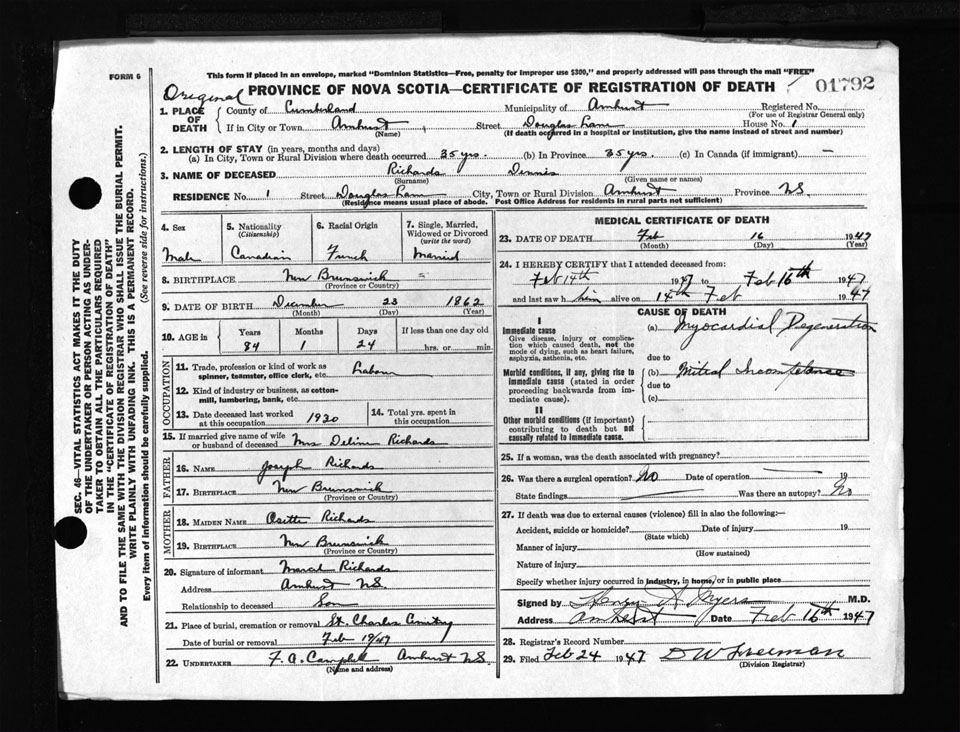 This form if placed in an envelope, marked "Dominion Statistics—Free, penalty for improper use $300," and properly addressed will pass through the mail "FREE"
FORM 6
Original
PROVINCE OF NOVA SCOTIA—CERTIFICATE OF REGISTRATION OF DEATH
01792
1. PLACE OF DEATH
County of Cumberland Municipality of Amherst Registered No.
(For use of Registrar General only)
If in City or Town Amherst Street Douglas Lane House No. 1
(Name) (If death occurred in a hospital or institution, give the name instead of street and number)
2. LENGTH OF STAY (in years, months and days)
(a) In City, Town or Rural Division where death occurred 35 yrs. (b) In Province 35 yrs. (c) In Canada (if immigrant) —
3. NAME OF DECEASED Richards Dennis
(Surname) (Given name or names)
RESIDENCE No. 1 Street Douglas Lane City, Town or Rural Division Amherst Province NS.
(Residence means usual place of abode. Post Office Address for residents in rural parts not sufficient)
SEC. 46—VITAL STATISTICS ACT MAKES IT THE DUTY
OF THE UNDERTAKER OR PERSON ACTING AS UNDER-
TAKER TO OBTAIN ALL THE PARTICULARS REQUIRED
IN THE "CERTIFICATE OF REGISTRATION OF DEATH"
AND TO FILE THE SAME WITH THE DIVISION REGISTRAR WHO SHALL ISSUE THE BURIAL PERMIT.
WRITE PLAINLY WITH UNFADING INK. THIS IS A PERMANENT RECORD.
Every item of information should be carefully supplied. (See reverse side for instructions.)
4. Sex
Male
5. Nationality
(Citizenship)
Canadian
6. Racial Origin
French
7. Single, Married,
Widowed or Divorced
(write the word)
Married
8. BIRTHPLACE New Brunswick
(Province or Country)
9. DATE OF BIRTH December 23 1862
(Month) (Day) (Year)
10. AGE in
Years Months Days If less than one day old
84 1 24 hrs. or min.
OCCUPATION
11. Trade, profession or kind of work as
spinner, teamster, office clerk, etc. Labour
12. Kind of industry or business, as cotton-
mill, lumbering, bank, etc.
13. Date deceased last worked
at this occupation 1930
14. Total yrs. spent in
this occupation
15. If married give name of wife
or husband of deceased Mrs Delina Richards
FATHER
16. NAME Joseph Richards
17. BIRTHPLACE New Brunswick
(Province or Country)
MOTHER
18. MAIDEN NAME Osette Richards
19. BIRTHPLACE New Brunswick
(Province or Country)
20. Signature of informant Richards
Address Amherst NS.
Relationship to deceased Son
21. Place of burial, cremation or removal St. Charles Cemetry
Date of burial or removal Feb 19/47
22. UNDERTAKER F. A. Campbell Amherst NS.
(Name and address)
MEDICAL CERTIFICATE OF DEATH
23. DATE OF DEATH Feb 16 1947
(Month) (Day) (Year)
24. I HEREBY CERTIFY that I attended deceased from:
Feb 14th 1947 to Feb 16th 1947
and last saw him alive on 14th Feb 1947
CAUSE OF DEATH
I
Immediate cause
Give disease, injury or complica-
tion which caused death, not the
mode of dying, such as heart failure,
asphyxia, asthenia, etc.
(a) Myocardial Degeneration
due to
Morbid conditions, if any, giving rise to
immediate cause (stated in order
proceeding backwards from im-
mediate cause).
(b) Mitral Incompetance
due to
(c)
II
Other morbid conditions (if important)
contributing to death but not
causally related to immediate cause.
25. If a woman, was the death associated with pregnancy?
26. Was there a surgical operation? No Date of operation — 19
State findings — Was there an autopsy? No
27. If death was due to external causes (violence) fill in also the following:—
Accident, suicide or homicide? Date of injury 19
(State which)
Manner of injury
(How sustained)
Nature of injury
Specify whether injury occurred in industry, in home, or in public place
Signed by Henry A Myers M.D.
Address Amherst Date Feb 16th 1947
28. Registrar's Record Number
29. Filed Feb 24 1947 D W Freeman
(Division Registrar)